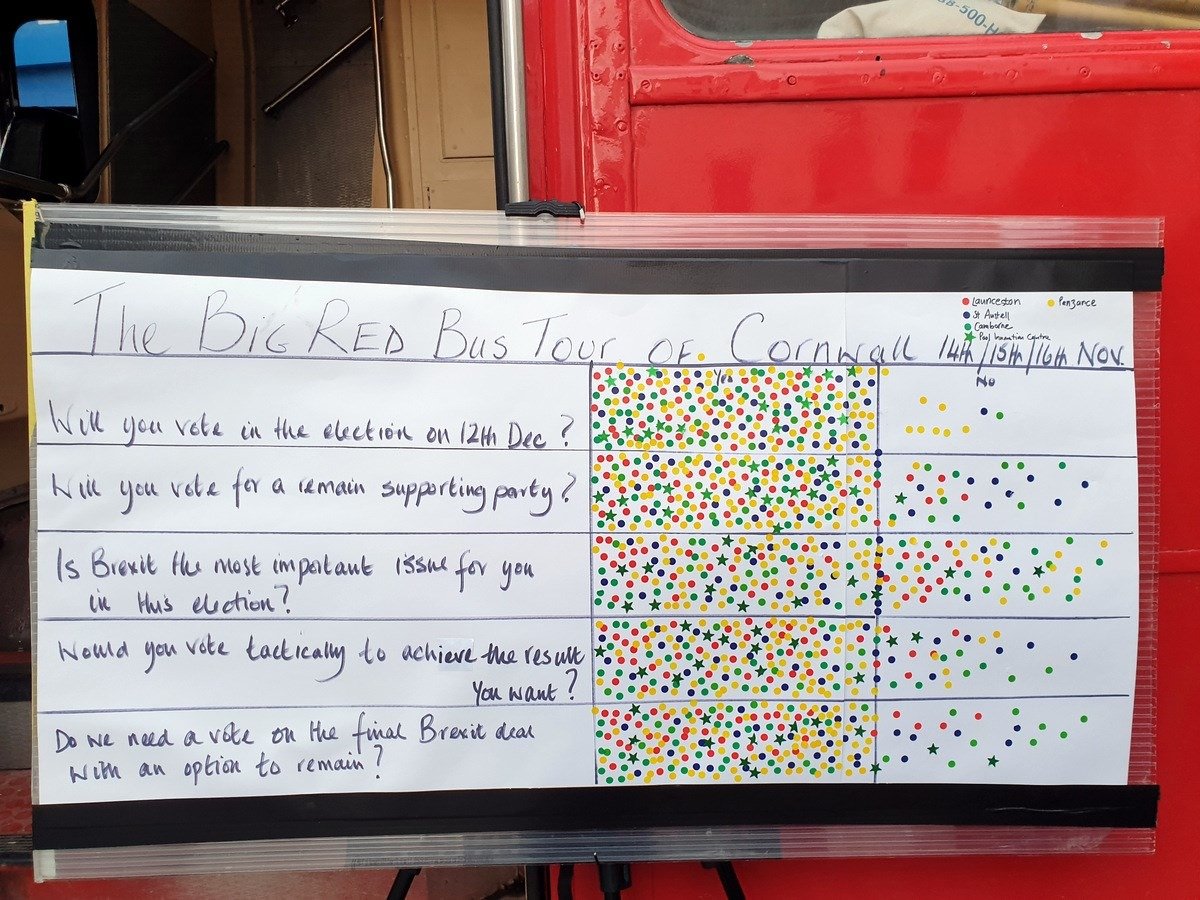 The Big Red Bus Tour of Cornwall 14th/15th/16th Nov.
Launceston
Penzance
St Austell
Camborne
Pool Innovation Centre
Yes
No
Will you vote in the election on 12th Dec?
Will you vote for a remain supporting party?
Is Brexit the most important issue for you
in this election?
Would you vote tactically to achieve the result
you want?
Do we need a vote on the final Brexit deal
with an option to remain?